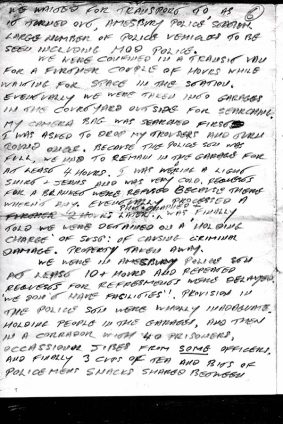 WE WAITED FOR TRANSPORT TO AS
IT TURNED OUT, AMESBURY POLICE STATION
LARGE NUMBER OF POLICE VEHICLES TO BE
SEEN INCLUDING MOD POLICE.
WE WERE CONFINED IN A TRANSIT VAN
FOR A FURTHER COUPLE OF HOURS WHILE
WAITING FOR SPACE IN THE STATION.
EVENTUALLY WE WERE TAKEN INTO GARAGES
IN THE COURTYARD OUTSIDE FOR SEARCHING.
MY CAMERA BAG WAS SEARCHED FIRST
I WAS ASKED TO DROP MY TROUSERS AND TURN
ROUND ONCE. BECAUSE THE POLICE STN WAS
FULL, WE HAD TO REMAIN IN THE GARAGES FOR
AT LEASE 4 HOURS. I WAS WEARING A LIGHT
SHIRT + JEANS AND WAS VERY COLD. REQUESTS
FOR A BLANKET WERE REFUSED BECAUSE THERE
WEREN'T ANY. EVENTUALLY PROCESSED A
FURTHER 2 HOURS LATER. WAS FINALLY
TOLD WE WERE DETAINED ON A 'HOLDING
CHARGE' OF SUS: OF CAUSING CRIMINAL
DAMAGE. PROPERTY TAKEN AWAY.
WE WERE IN AMESBURY POLICE STN
AT LEASE 10+ HOURS AND REPEATED
REQUESTS FOR REFRESHMENTS WERE DELAYED,
'WE DON'T HAVE FACILITIES'. PROVISION IN
THE POLICE STN WERE WHOLLY INADEQUATE.
HOLDING PEOPLE IN THE GARAGES, AND THEN
IN A CORRADOR WITH 40 PRISONERS,
OCCASSIONAL JIBES FROM SOME OFFICERS.
AND FINALLY 3 CUPS OF TEA AND BITS OF
POLICEMENS SNACKS SHARED BETWEEN